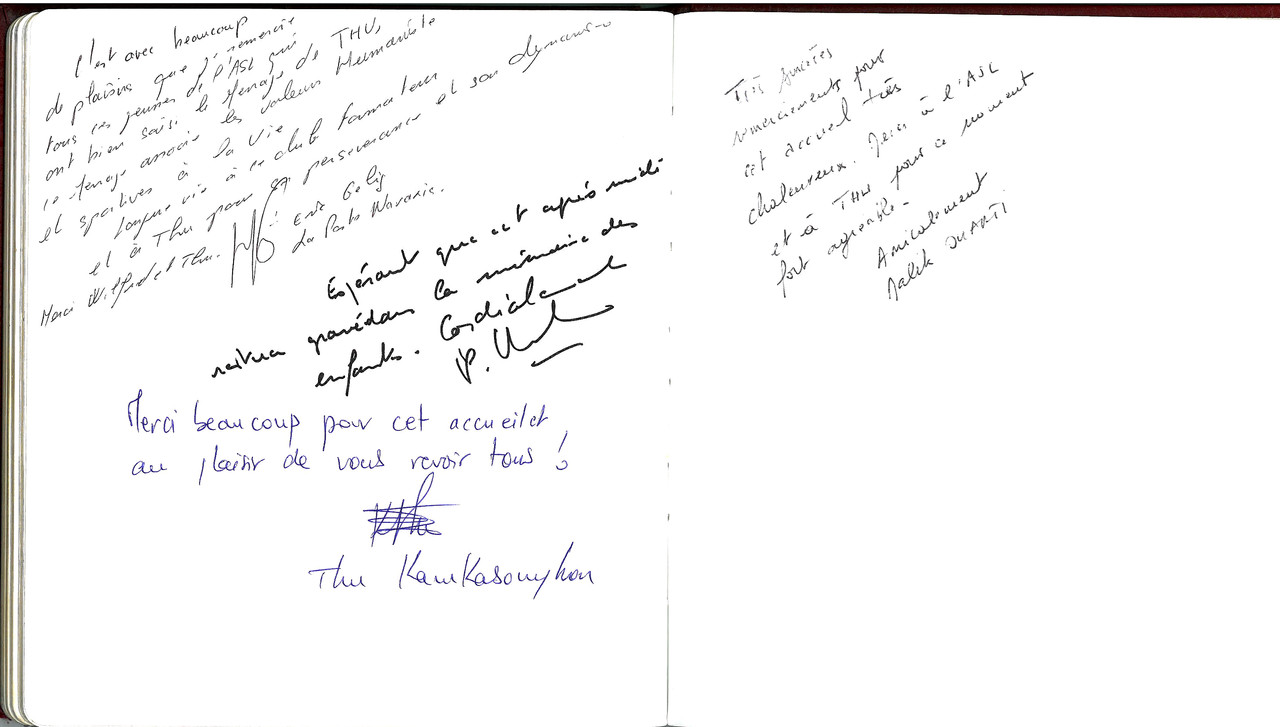 C'est avec beaucoup
de plaisirs que je remercie
tous ces jeunes de l'ASL qui
ont bien saisi le message de THU,
ce message associe les valeurs Humaniste
et sportives à la vie
longue vie à ce club formateur
et à Thu pour sa perseverance et son dynamis
Merci Wilfried et Thu.
Eric Gelig
La Poste Navarre.
Espérant que cet après midi
restera gravé dans la mémoire des
enfants. Cordialement
P.
Merci beaucoup pour cet accueil et
au plaisir de vous revoir tous !
Thu Kamkasomphou
Très sincères
remerciements pour
cet accueil très
chaleureux. Merci à l'ASL
et à THU pour ce moment
fort agréable.
Amicalement
Malik OUARTI